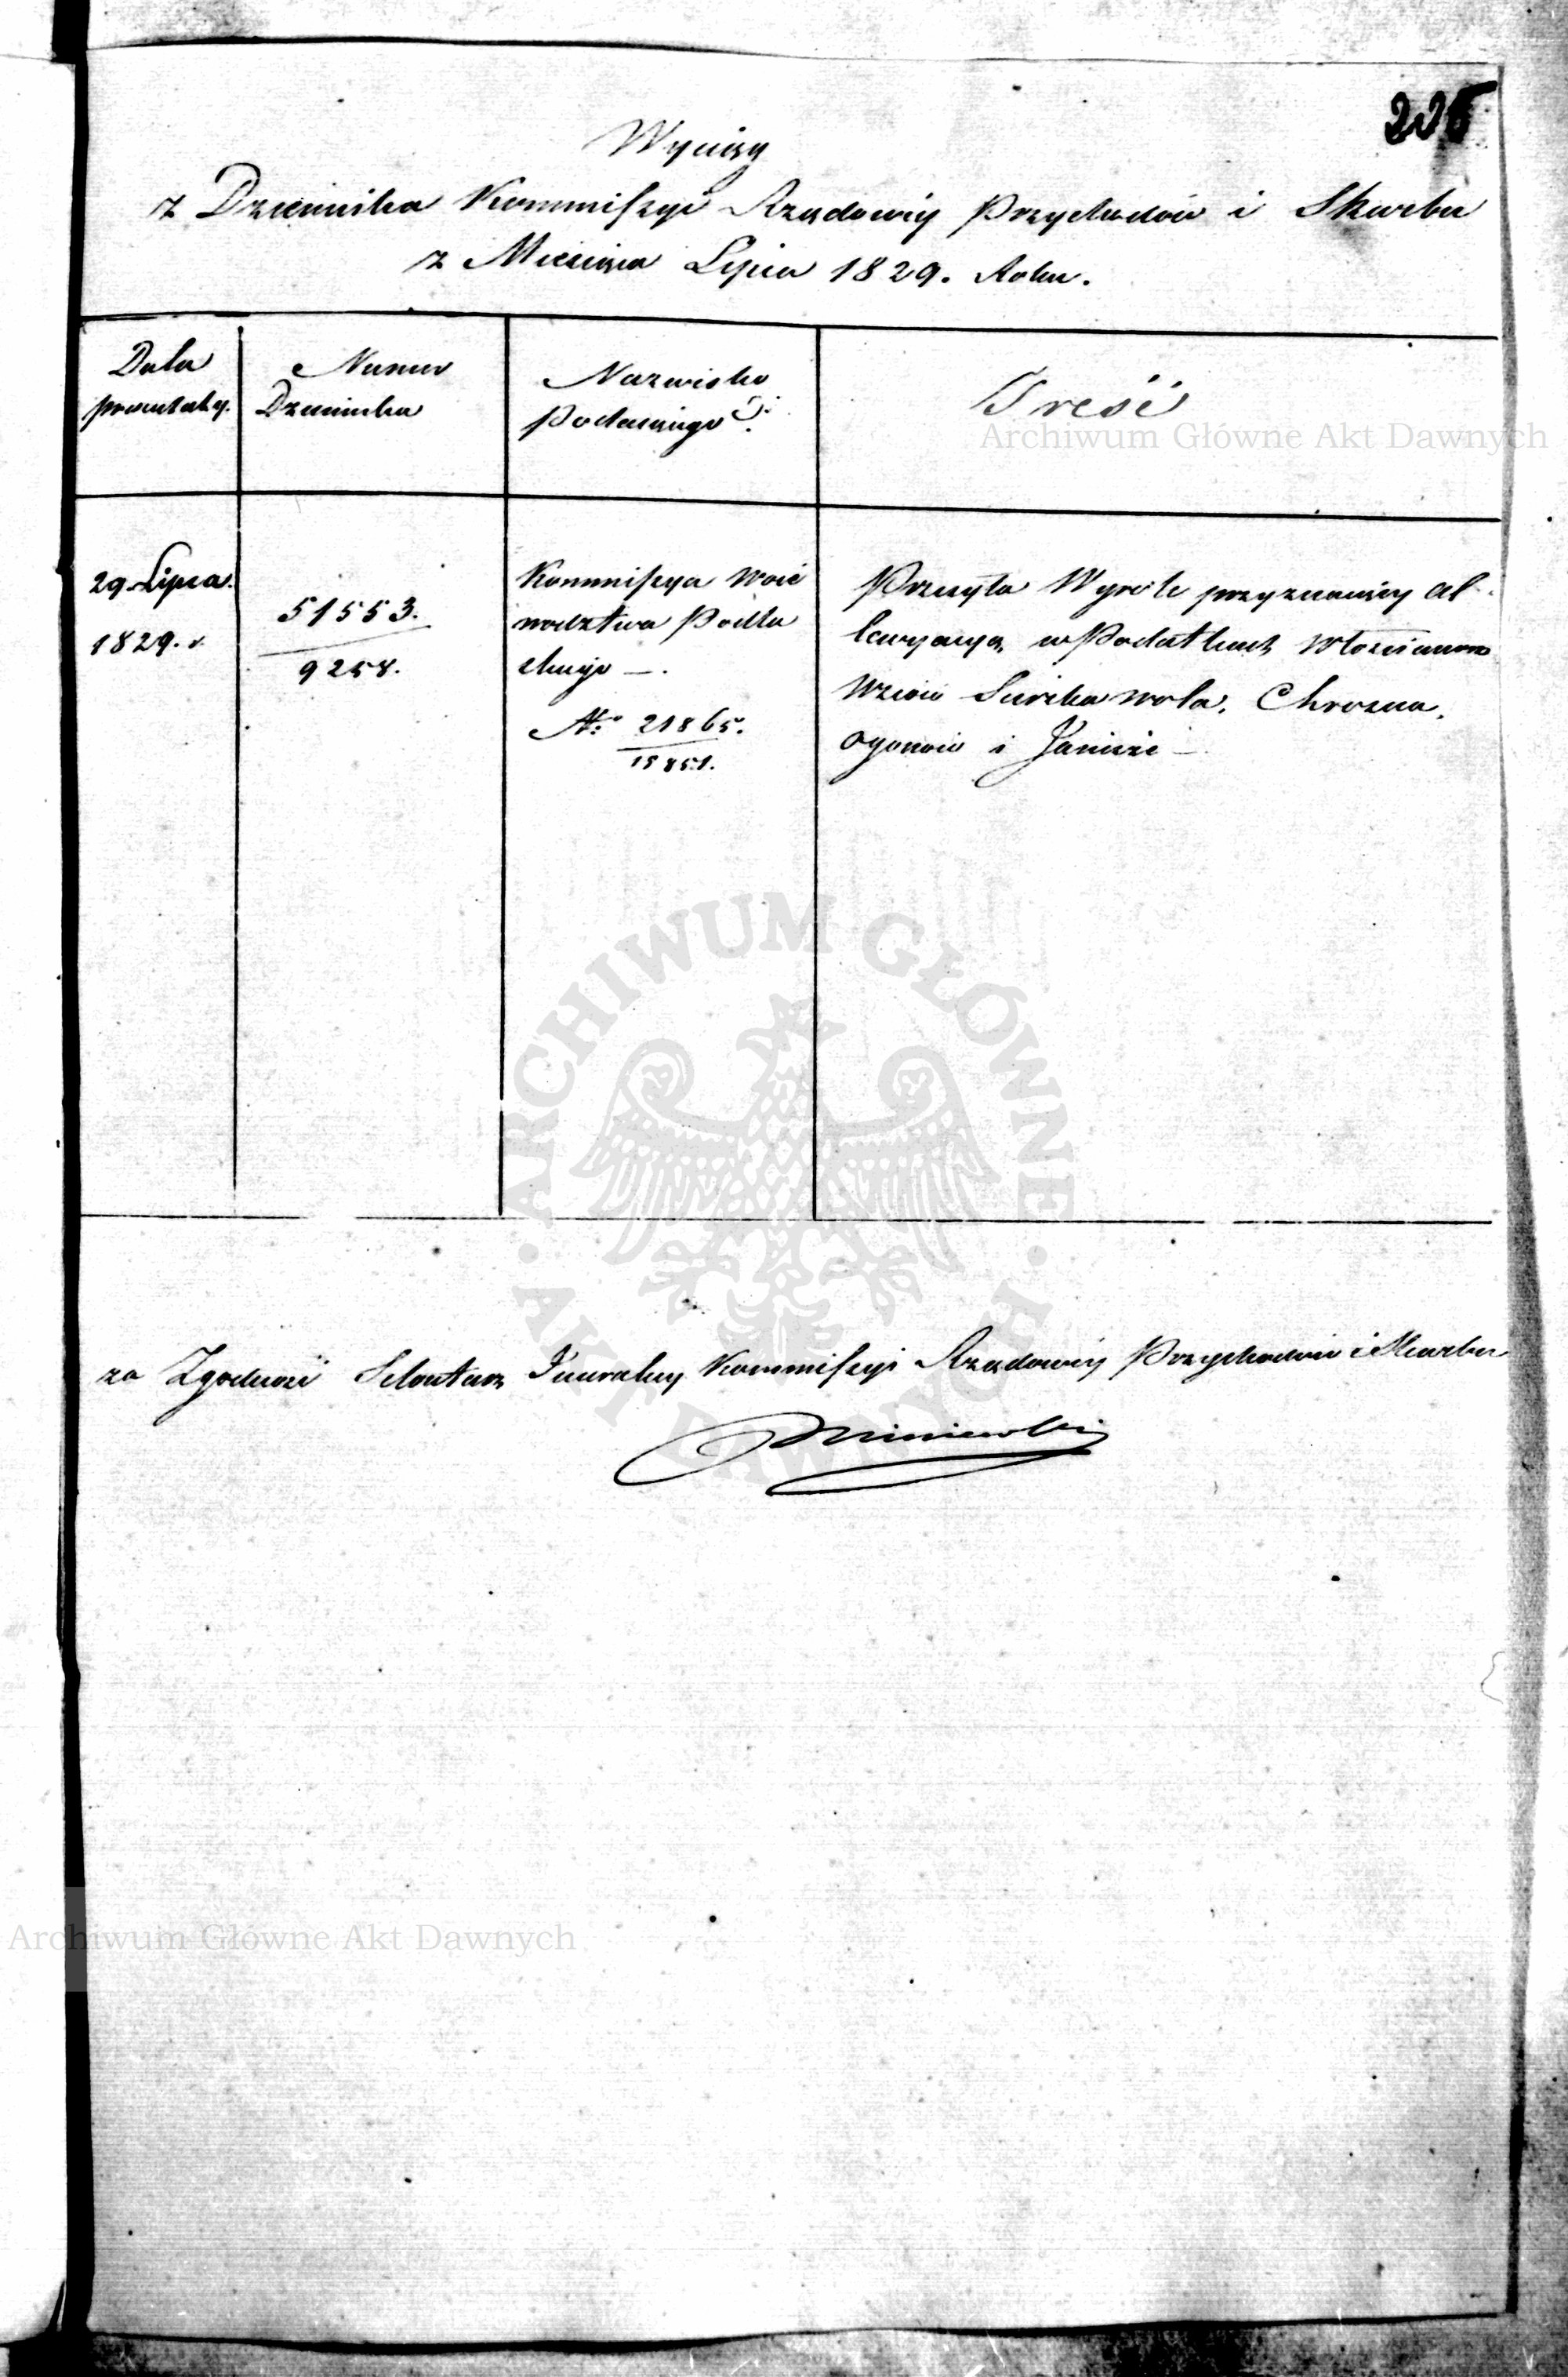 226
Wyciąg
z Dziennika Kommissyi Rządowéy Przychodów i Skarbu
z Miesiąca Lipca 1829. Roku.
Data
prezentaty.
Numer
Dziennika
Nazwisko
Podaiącego
Treść
Archiwum Główne Akt Dawnych
29 Lipca.
1829. r
51553.
9258.
Kommissya Woie
wodztwa Podla
skiego —.
No: 21865.
15851.
Przesyła Wyrok przyznaiący al
lewyacyą w Podatkach Włościanom
Wsiów Wola, Chrosna,
Ogonów i
ARCHIWUM GŁÓWNE · AKT DAWNYCH ·
za Zgodność Sekretarz Jeneralny Kommissyi Rządowéy Przychodów i Skarbu
Archiwum Główne Akt Dawnych